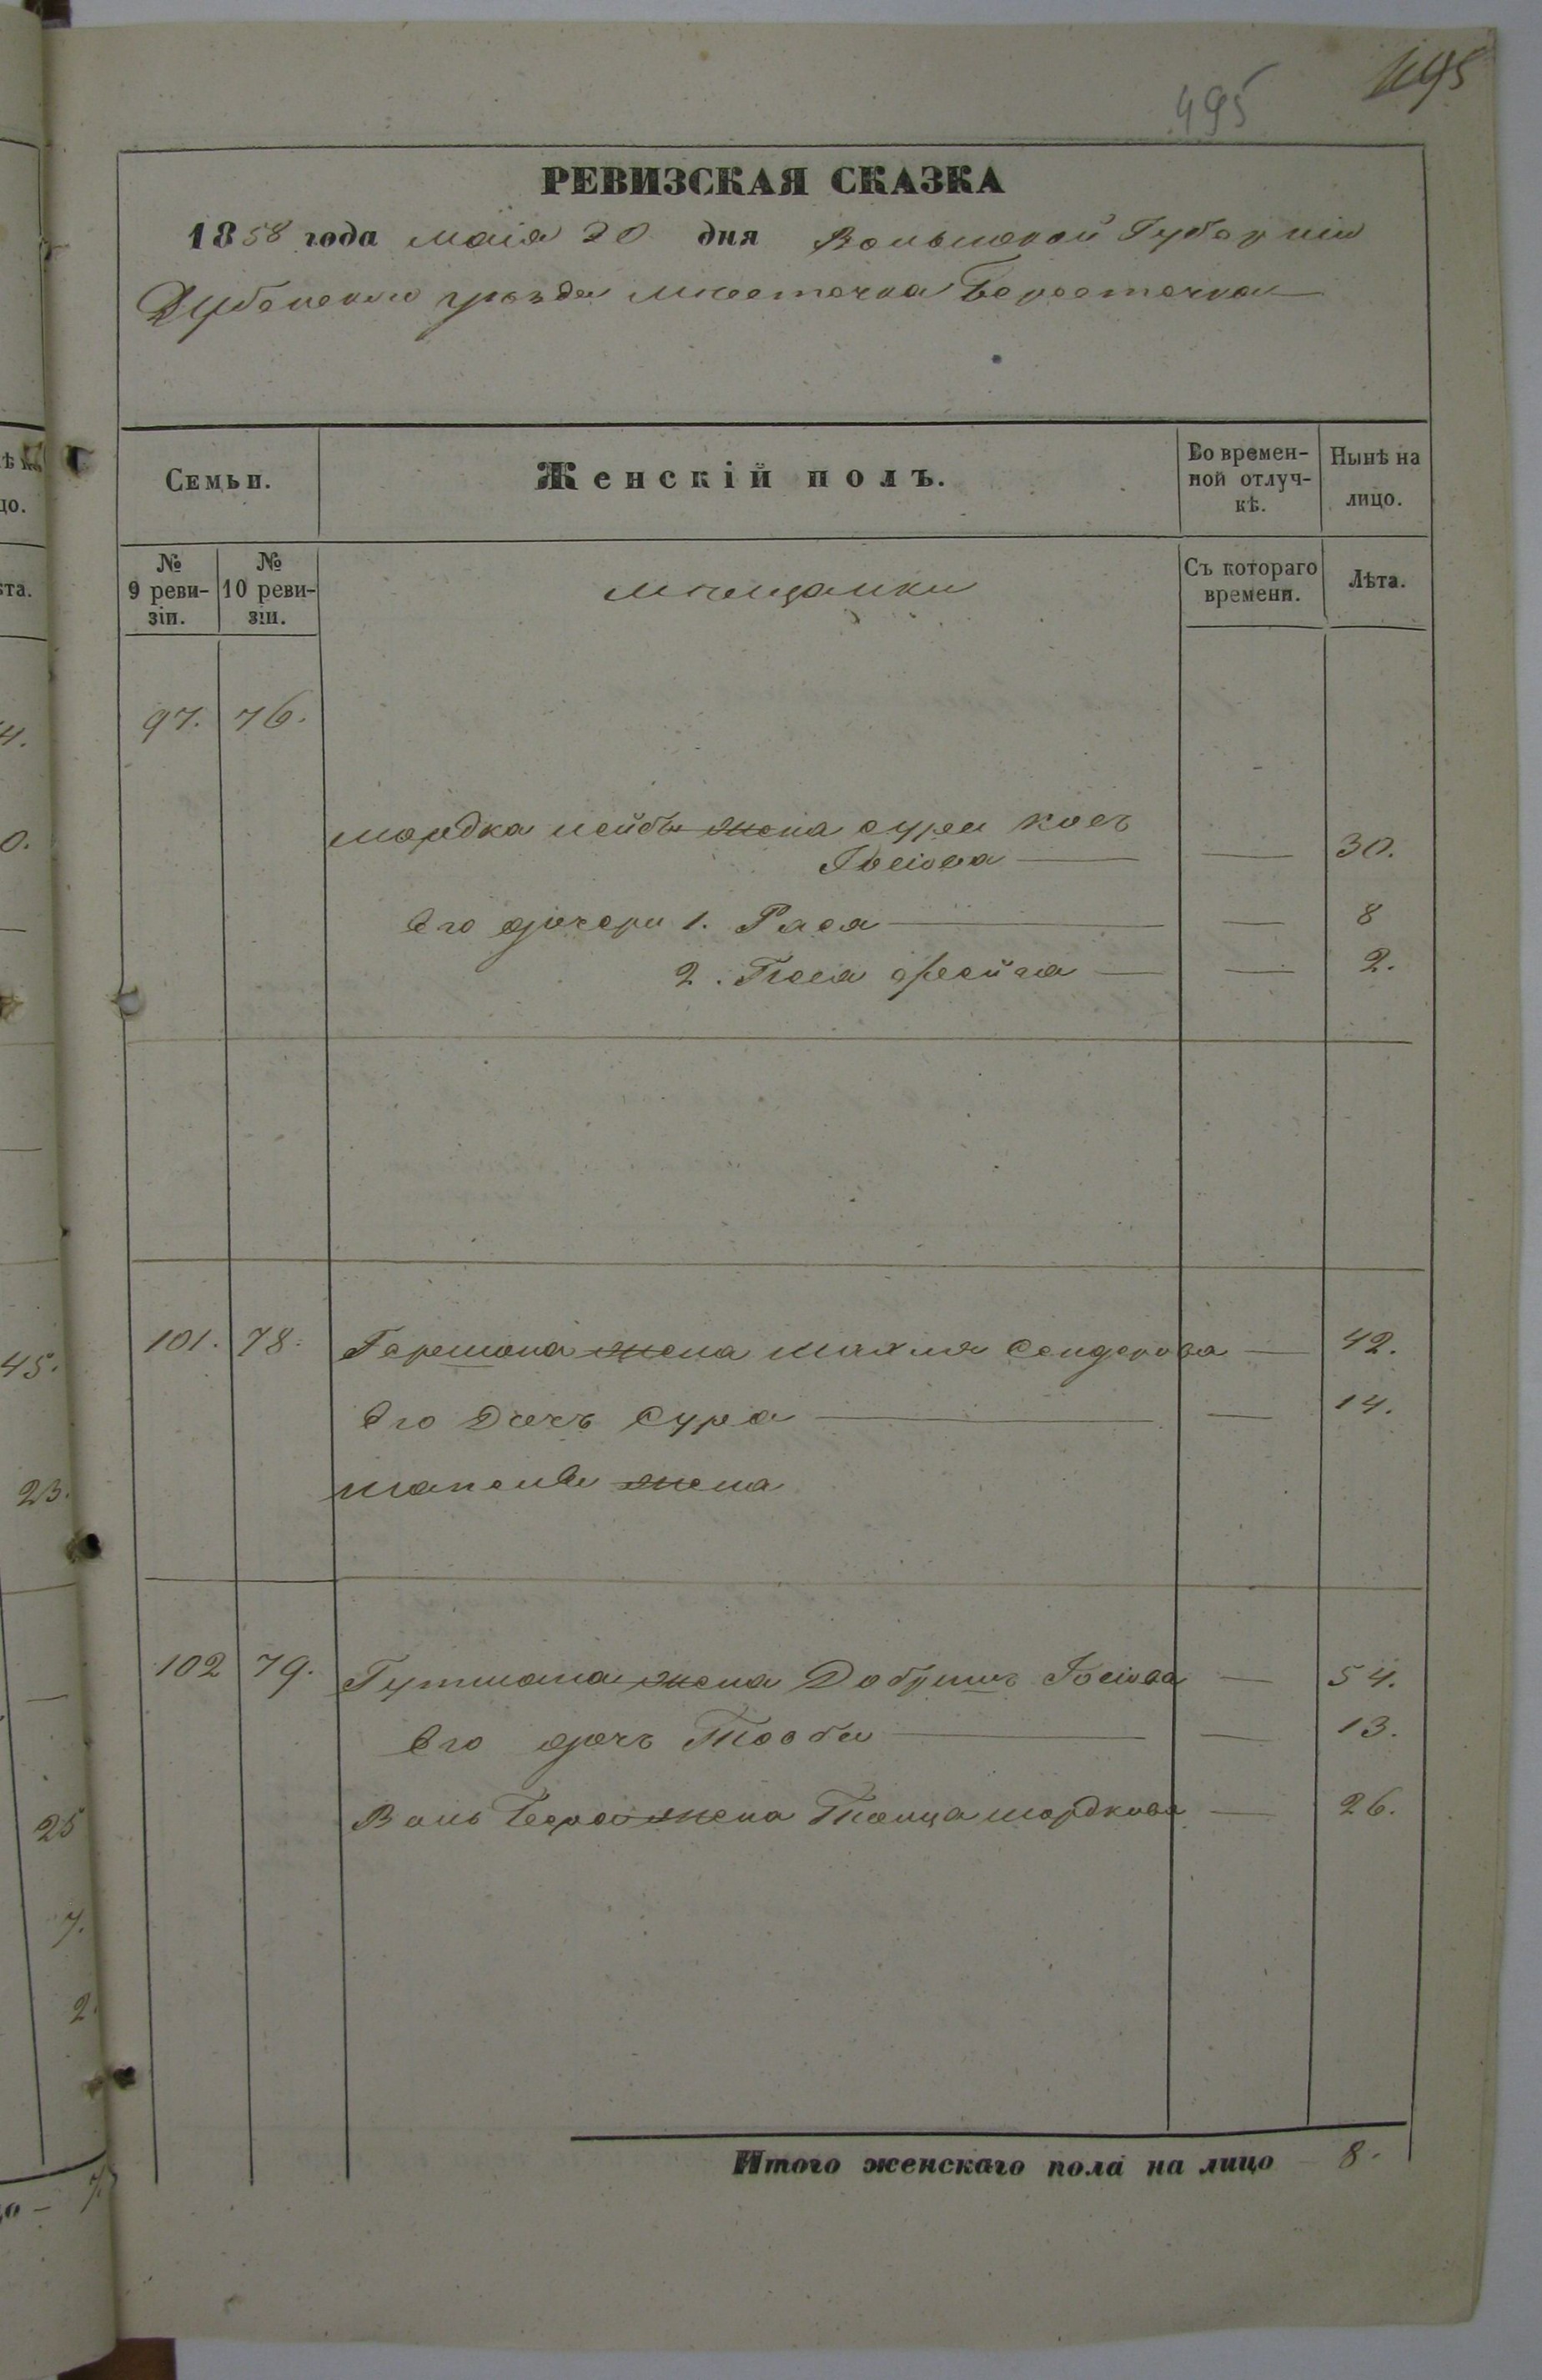 495
495
РЕВИЗСКАЯ СКАЗКА
1858 года маія 20 дня Волынской Губерніи
Дубенского уезда местечка Берестечка
Семьи.
Женскій полъ.
Во времен-
ной отлуч-
кѣ.
Нынѣ на
лицо.
№
9 реви-
зіи.
№
10 реви-
зіи.
мещанки
Съ котораго
времени.
Лѣта.
97. 76.
Мордка Лейбы жена Сура
Іосіова — — 30.
Его дочери 1. Рася — — 8
2. Фрейга — — 2.
101. 78. Гершона жена Махля Сендерова — 42.
Его Дочъ Сура — — 14.
жена
102 79. Гутмана жена Добришъ Іосіова — 54.
Его дочъ Тоба — — 13.
Вольберо жена Мордкова — 26.
Итого женскаго пола на лицо — 8.
4.
0.
45.
23.
25
7.
2.